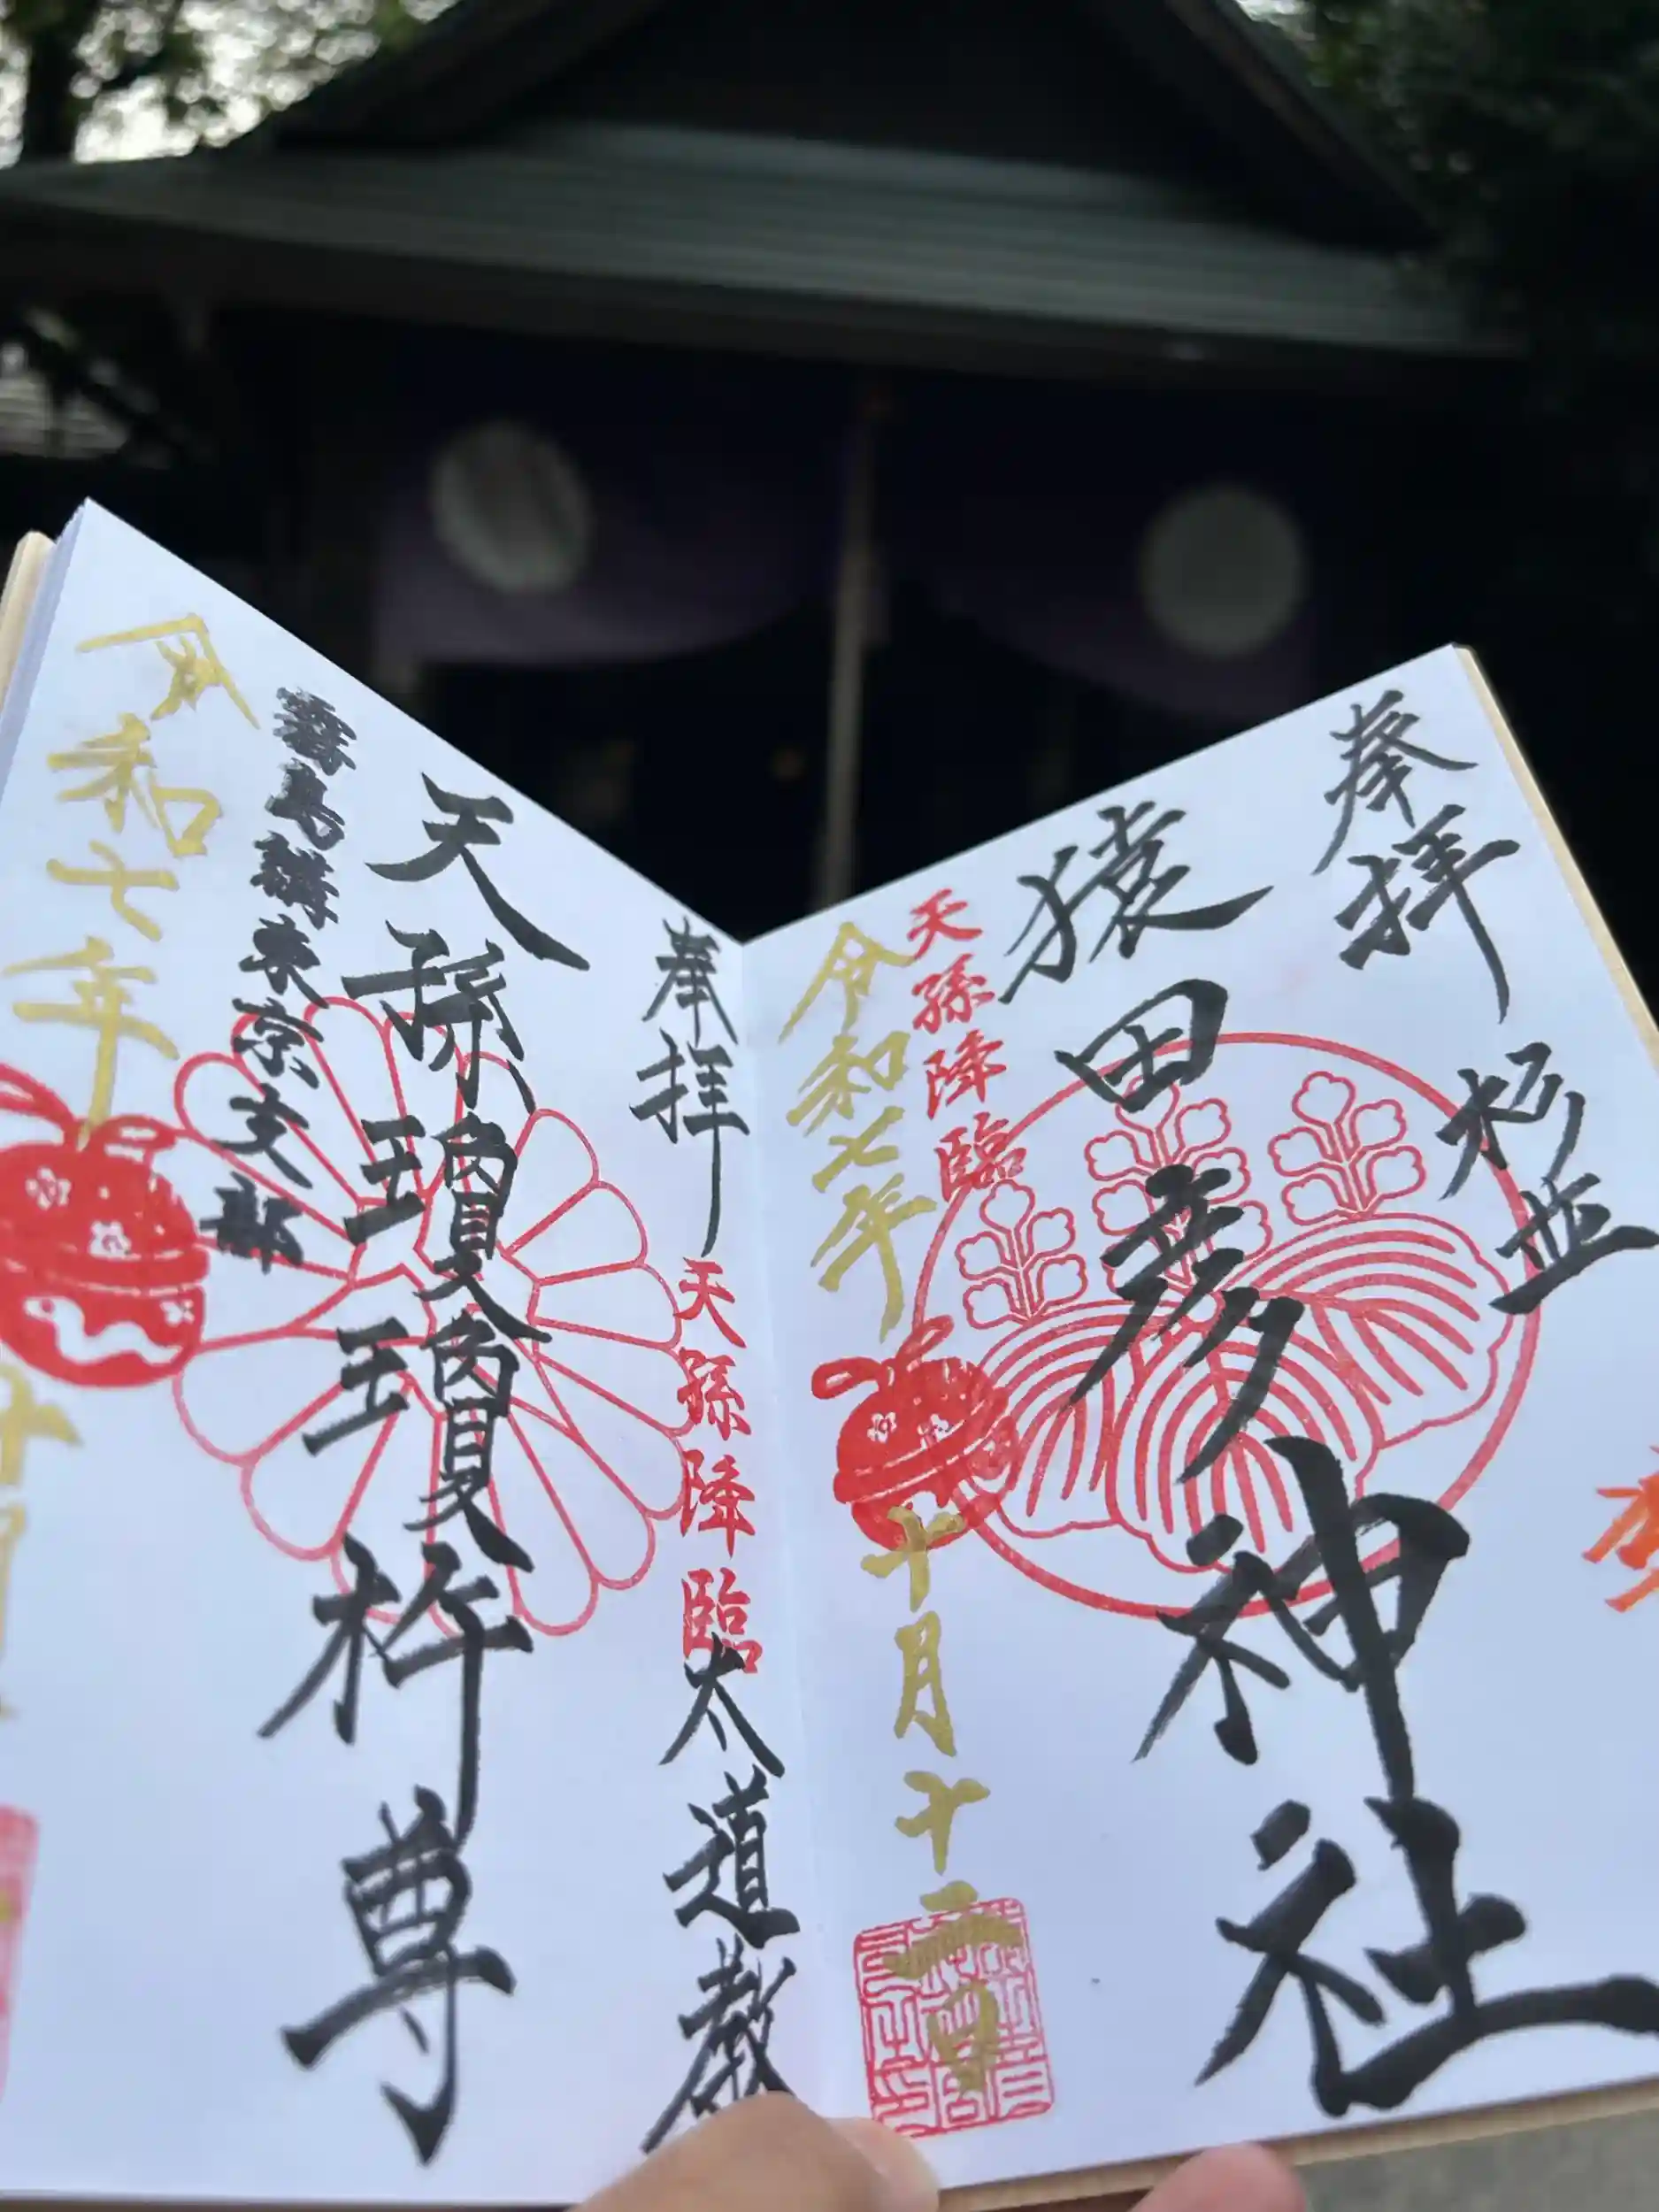 奉拝
桜並
猿田彦神社
天孫降臨
令和七年
十月十二日
奉拝
天孫降臨
太道教
天孫瓊瓊杵尊
霧島講東京支部
令和七年